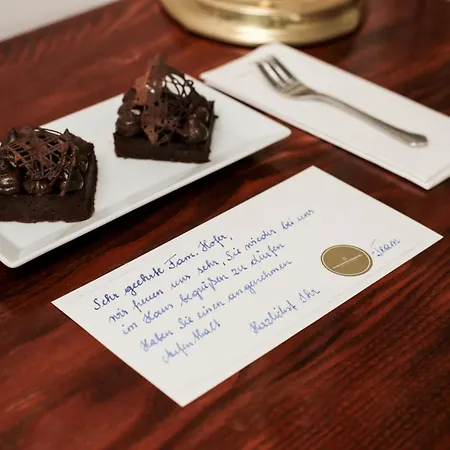 Sehr geehrte Fam. Hofer,
wir freuen uns sehr, Sie wieder bei uns
im Haus begrüßen zu dürfen
Haben Sie einen angenehmen
Aufenthalt
Herzlichst, Ihr
-Team